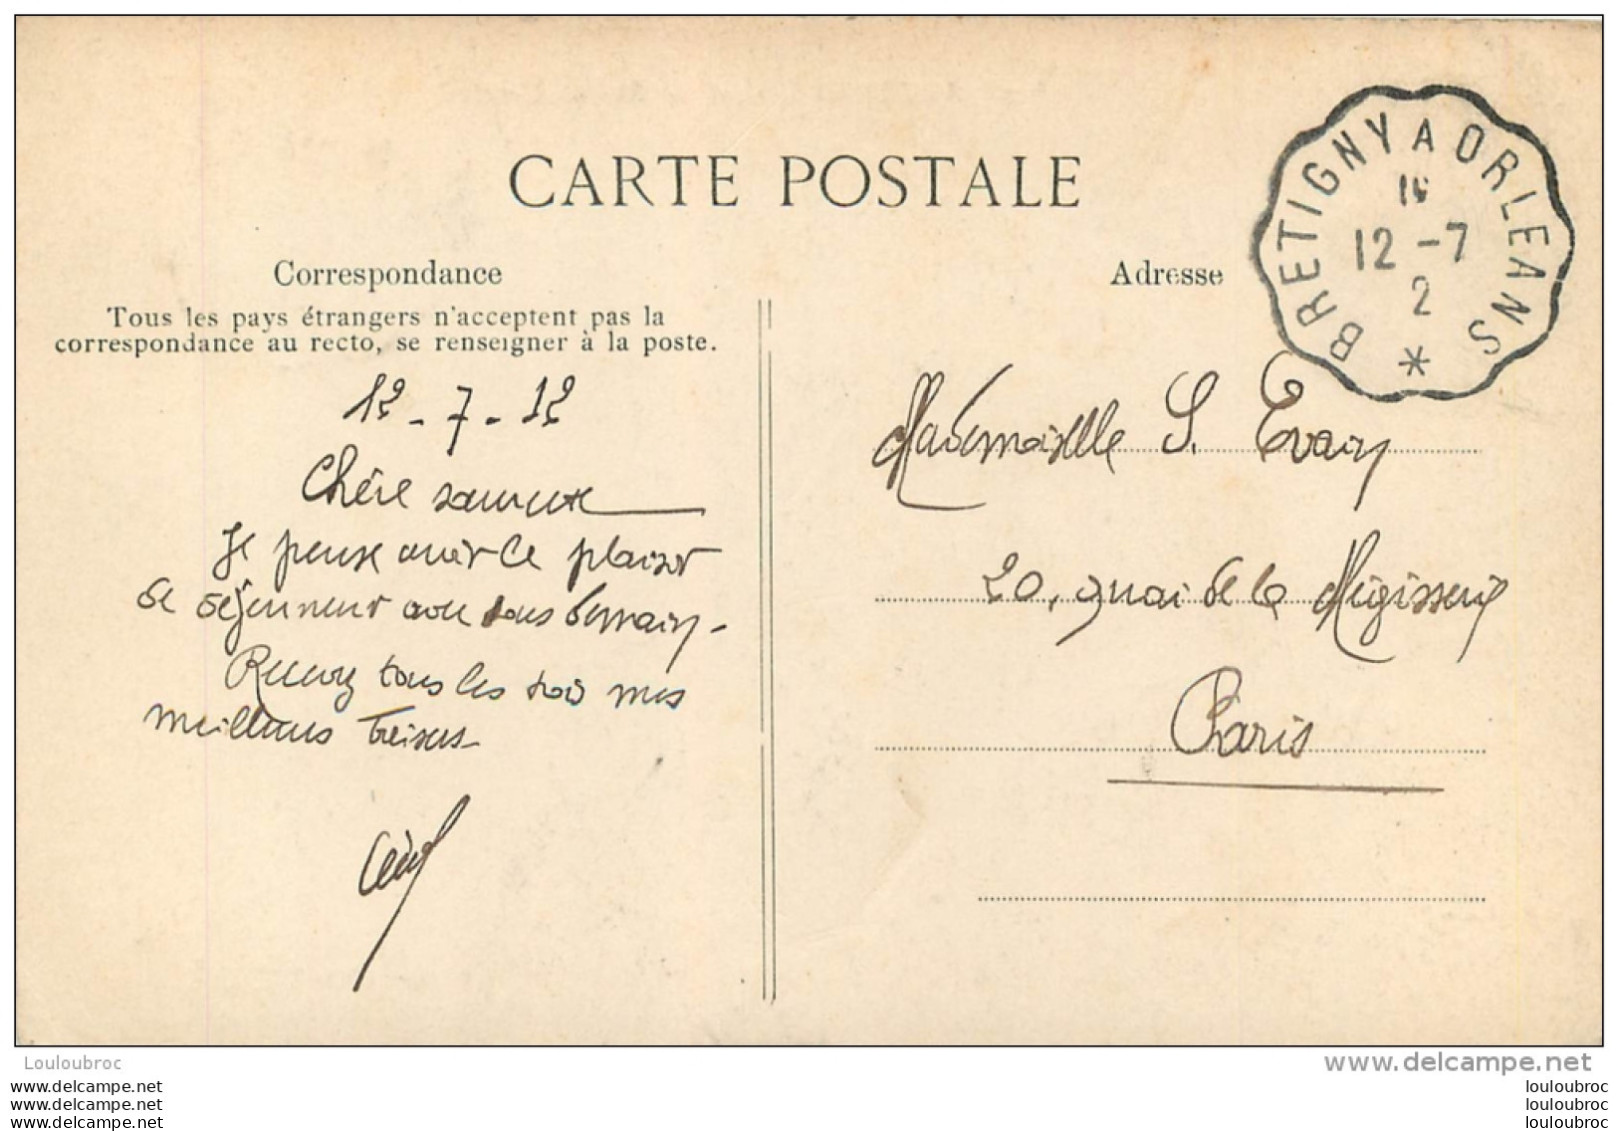 CARTE POSTALE
Correspondance
Tous les pays étrangers n'acceptent pas la
correspondance au recto, se renseigner à la poste.
12-7-12
Chère
Je pense avoir le plaisir
de déjeuner avec vous demain.
Recevez tous les trois mes
meilleurs baisers.
Adresse
BRETIGNY A ORLEANS
12 -7
2
*
Mademoiselle S. Evain
20, quai de la Mégisserie
Paris
Louloubroc
www.delcampe.net
www.delcampe.net
www.delcampe.net
www.delcampe.net
louloubroc
louloubroc
louloubroc